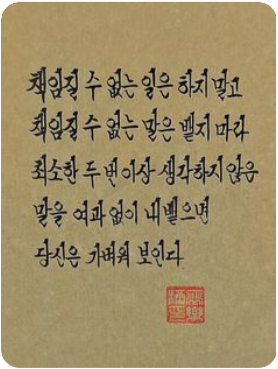 책임질 수 없는 일은 하지 말고
책임질 수 없는 말은 뱉지 마라
최소한 두 번 이상 생각하지 않은
말을 여과 없이 내뱉으면
당신은 가벼워 보인다